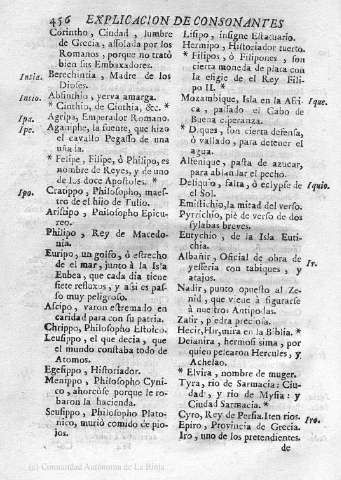 456 EXPLICACION DE CONSONANTES
Corintho, Ciudad, lumbre
de Grecia, assolada por los
Romanos, porque no trató
bien sus Embaxadores.
Intia. Berecinthia, Madre de los
Dioses.
Intio. Absinthio, yerva amarga.
* Cinthio, de Cinthia, &c. *
Ipa. Agripa, Emperador Romano.
Ipe. Aganiphe, la fuente, que hizo
el cavallo Pegasso de una
uñada.
* Felipe, Filipe, ò Philipo, es
nombre de Reyes, y de uno
de los doce Apostoles. *
Ipo. Cratippo, Philosopho, maes-
tro de el hijo de Tulio.
Aristipo, Philosopho Epicu-
reo.
Philipo, Rey de Macedo-
nia.
Euripo, un golfo, ò estrecho
de el mar, junto à la Isla
Eubea, que cada dia tiene
siete refluxos, y assi es pas-
so muy peligroso.
Ascipo, varon estremado en
caridad para con su patria.
Chrippo, Philosopho Estoico.
Leusippo, el que decia, que
el mundo constaba todo de
Atomos.
Egesippo, Historiador.
Menippo, Philosopho Cyni-
co, ahorcóse porque le ro-
baron la hacienda.
Seusippo, Philosopho Plato-
nico, murió comido de pio-
jos.
Lisipo, insigne Estatuario.
Hermipo, Historiador tuerto.
* Filipos, ò Filipones, son
cierta moneda de plata con
la efigie de el Rey Fili-
po II. *
Mozambique, Isla en la Afri- Ique.
ca, passado el Cabo de
Buena esperanza.
* Diques, son cierta defensa,
ò vallado, para detener el
agua.
Alfenique, pasta de azucar,
para ablandar el pecho.
Deliquio, falta, ò eclypse de Iquio.
el Sol.
Emistichio, la mitad del verso.
Pyrrichio, pie de verso de dos
sylabas breves.
Eutychio, de la Isla Euti-
chia.
Albañir, Oficial de obra de Ir.
yesseria con tabiques, y
atajos.
Nadir, punto opuesto al Ze-
nid, que viene à figurarse
à nuestros Antipodas.
Zafir, piedra preciosa.
Hecir, Hir, mira en la Biblia. *
Deianira, hermosissima, por
quien pelearon Hercules, y
Achelao.
* Elvira, nombre de muger.
Tyra, rio de Sarmacia: Ciu-
dad, y rio de Mysia: y
Ciudad Sarmacia. *
Cyro, Rey de Persia. Iten rios. Iro.
Epiro, Provincia de Grecia.
Iro, uno de los pretendientes.
de
(c) Comunidad Autónoma de La Rioja